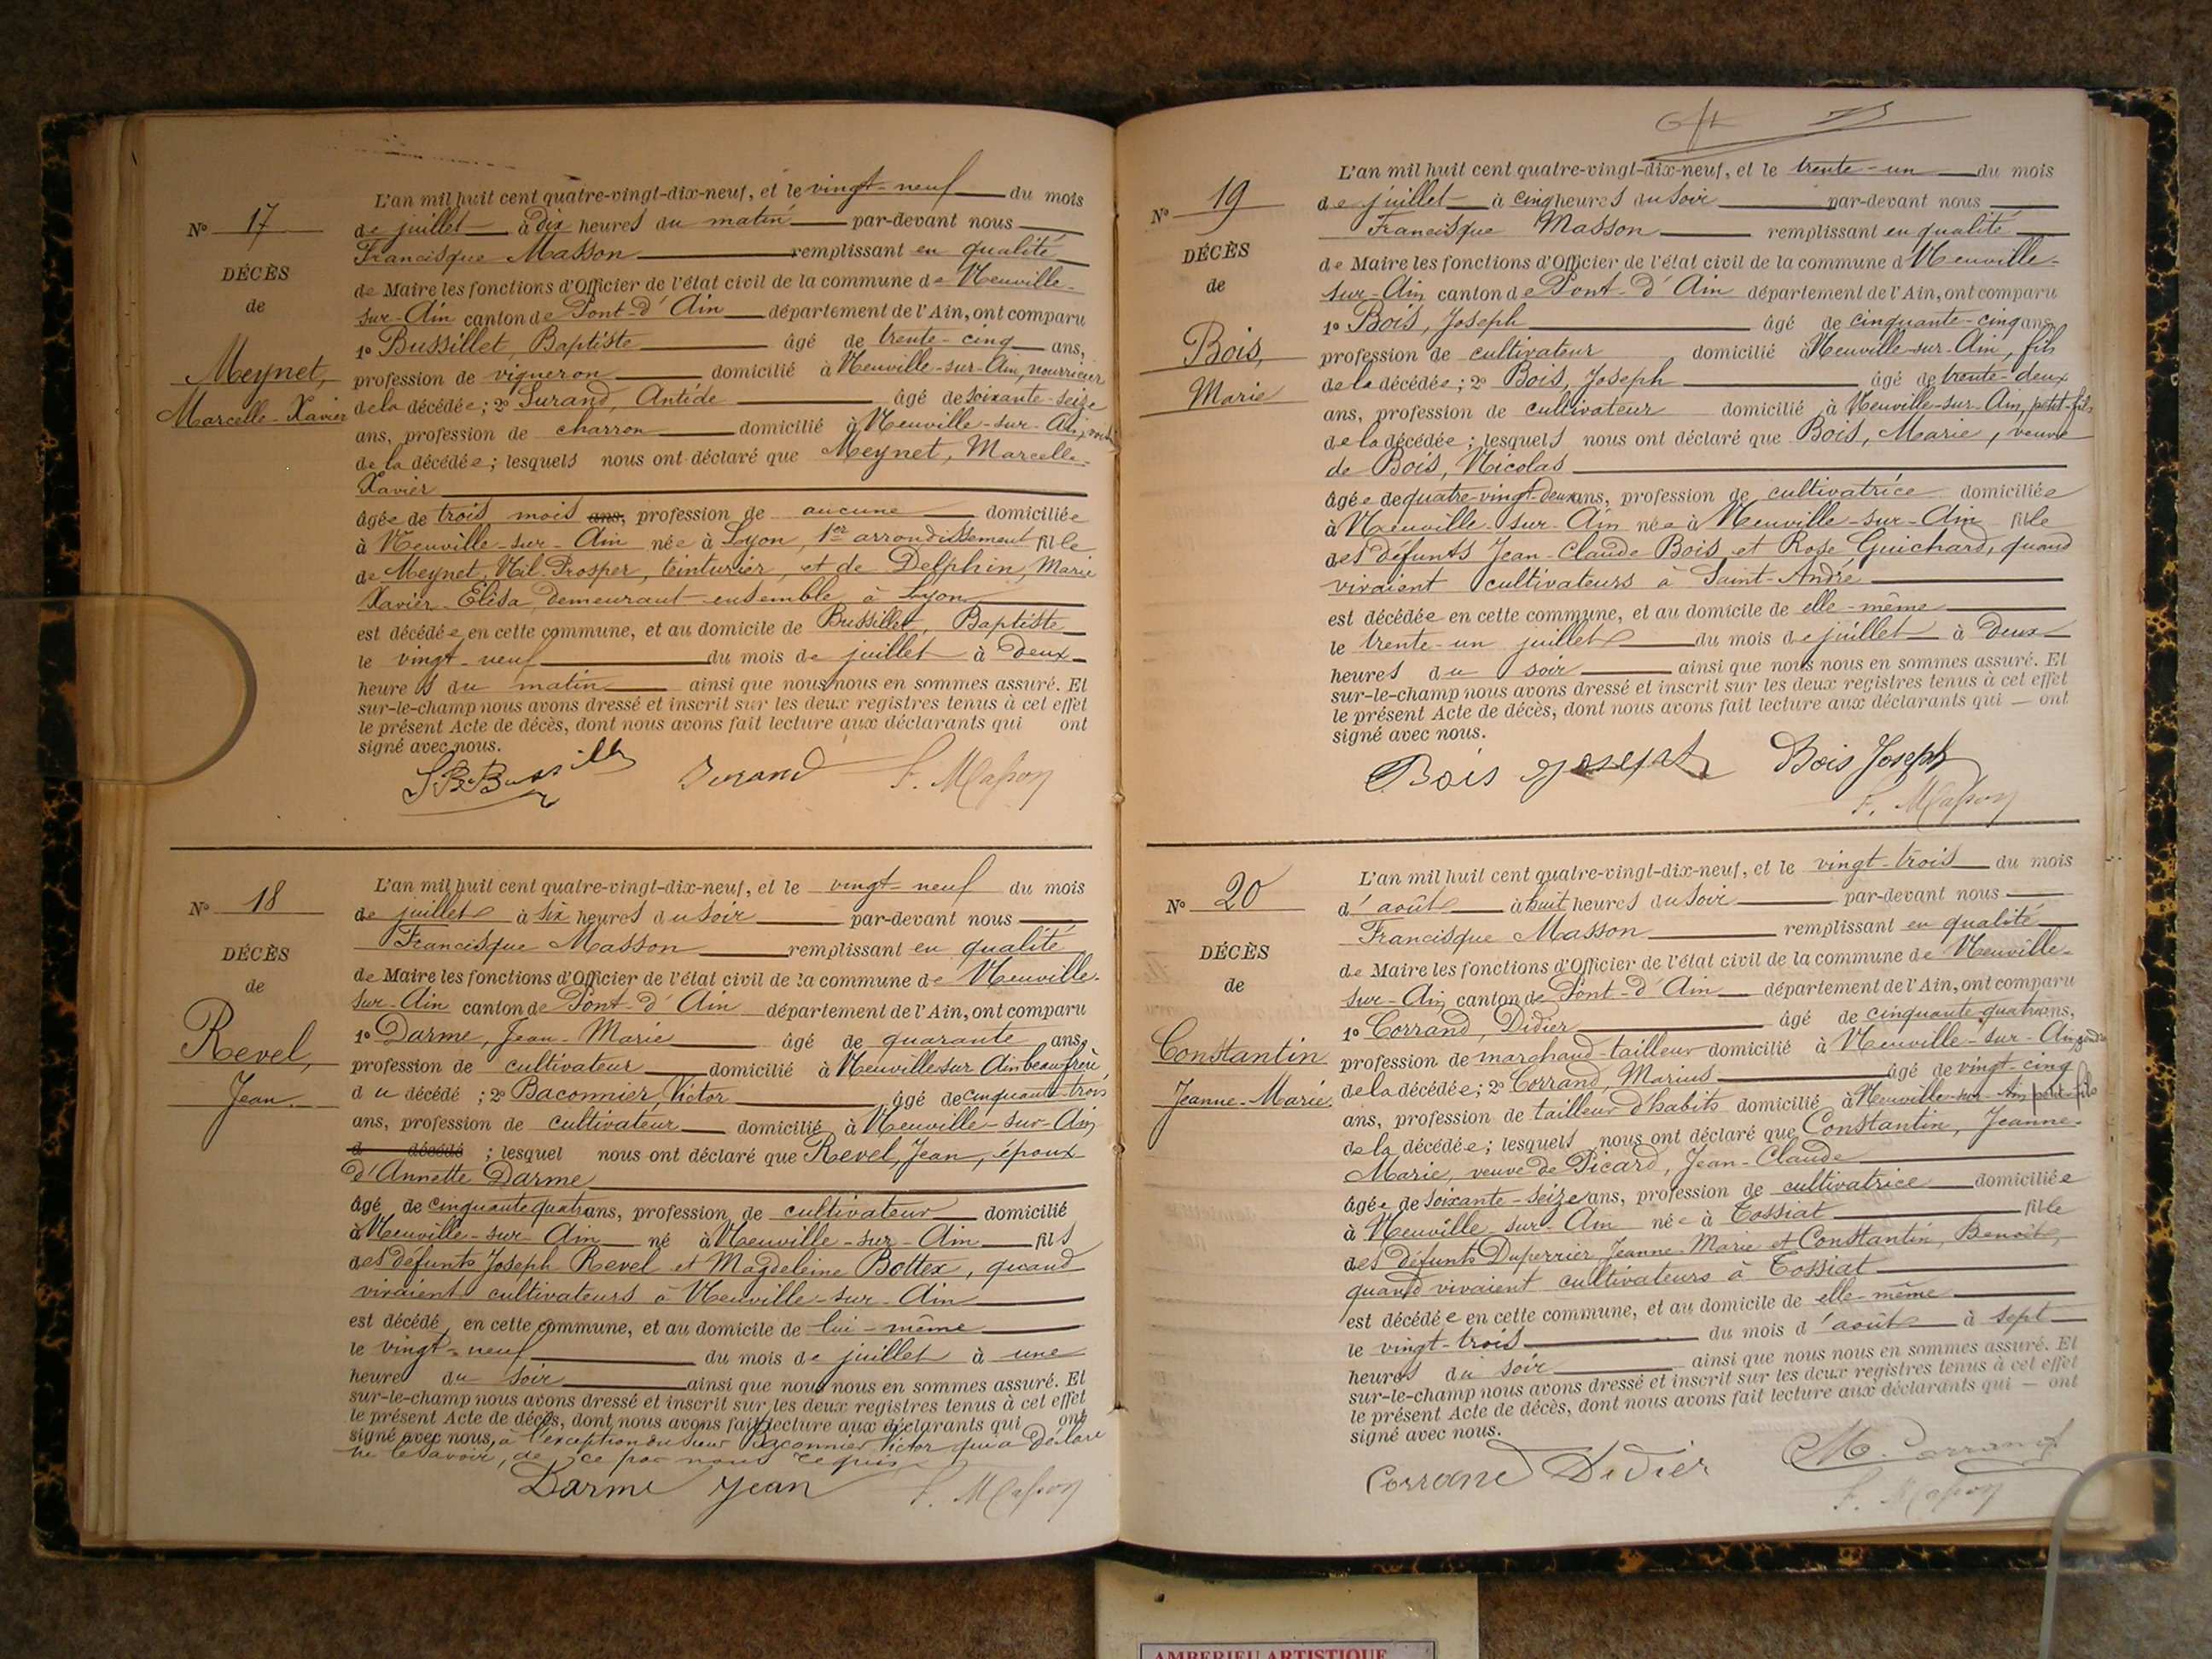 N° 17
DÉCÈS
de
Meynet,
Marcelle-Xavier
L'an mil huit cent quatre-vingt-dix-neuf, et le vingt-neuf du mois
de juillet à dix heures du matin par-devant nous
Francisque Masson remplissant en qualité
de Maire les fonctions d'Officier de l'état civil de la commune de Neuville-
sur-Ain canton de Pont-d'Ain département de l'Ain, ont comparu
1° Bussillet, Baptiste âgé de trente-cinq ans,
profession de vigneron domicilié à Neuville-sur-Ain, nourricier
de la décédée; 2° Durand, Antide âgé de soixante-seize
ans, profession de charron domicilié à Neuville-sur-Ain,
de la décédée; lesquels nous ont déclaré que Meynet, Marcelle-
Xavier
âgée de trois mois ans, profession de aucune domiciliée
à Neuville-sur-Ain née à Lyon, 1er arrondissement fille
de Meynet, Nil-Prosper, teinturier, et de Delphin, Marie
Xavier-Elisa, demeurant ensemble à Lyon
est décédée en cette commune, et au domicile de Bussillet, Baptiste
le vingt-neuf du mois de juillet à deux
heures du matin ainsi que nous nous en sommes assuré. Et
sur-le-champ nous avons dressé et inscrit sur les deux registres tenus à cet effet
le présent Acte de décès, dont nous avons fait lecture aux déclarants qui ont
signé avec nous.
Durand F. Masson
N° 18
DÉCÈS
de
Revel,
Jean
L'an mil huit cent quatre-vingt-dix-neuf, et le vingt-neuf du mois
de juillet à six heures du soir par-devant nous
Francisque Masson remplissant en qualité
de Maire les fonctions d'Officier de l'état civil de la commune de Neuville-
sur-Ain canton de Pont-d'Ain département de l'Ain, ont comparu
1° Darme, Jean-Marie âgé de quarante ans,
profession de cultivateur domicilié à Neuville sur Ain beau-frère
du décédé; 2° Baconnier, Victor âgé de cinquante-trois
ans, profession de cultivateur domicilié à Neuville-sur-Ain
d décédé; lesquel nous ont déclaré que Revel, Jean, époux
d'Annette Darme
âgé de cinquante quatre ans, profession de cultivateur domicilié
à Neuville-sur-Ain né à Neuville-sur-Ain fils
des défunts Joseph Revel et Magdeleine Bottex, quand
vivaient cultivateurs à Neuville-sur-Ain
est décédé en cette commune, et au domicile de lui-même
le vingt-neuf du mois de juillet à une
heure du soir ainsi que nous nous en sommes assuré. Et
sur-le-champ nous avons dressé et inscrit sur les deux registres tenus à cet effet
le présent Acte de décès, dont nous avons fait lecture aux déclarants qui ont
signé avec nous, à l'exception du sieur Baconnier Victor qui a déclaré
ne le savoir, de ce par nous requis
Darme Jean F. Masson
N° 19
DÉCÈS
de
Bois,
Marie
L'an mil huit cent quatre-vingt-dix-neuf, et le trente-un du mois
de juillet à cinq heures du soir par-devant nous
Francisque Masson remplissant en qualité
de Maire les fonctions d'Officier de l'état civil de la commune d Neuville-
sur-Ain canton de Pont-d'Ain département de l'Ain, ont comparu
1° Bois, Joseph âgé de cinquante-cinq ans,
profession de cultivateur domicilié à Neuville-sur-Ain, fils
de la décédée; 2° Bois, Joseph âgé de trente-deux
ans, profession de cultivateur domicilié à Neuville-sur-Ain, petit-fils
de la décédée; lesquels nous ont déclaré que Bois, Marie, veuve
de Bois, Nicolas
âgée de quatre-vingt-deux ans, profession de cultivatrice domiciliée
à Neuville-sur-Ain née à Neuville-sur-Ain fille
des défunts Jean-Claude Bois et Rose Guichard, quand
vivaient cultivateurs à Saint-André
est décédée en cette commune, et au domicile de elle-même
le trente-un juillet du mois de juillet à deux
heures du soir ainsi que nous nous en sommes assuré. Et
sur-le-champ nous avons dressé et inscrit sur les deux registres tenus à cet effet
le présent Acte de décès, dont nous avons fait lecture aux déclarants qui — ont
signé avec nous.
Bois joseph Bois Joseph
F. Masson
N° 20
DÉCÈS
de
Constantin
Jeanne-Marie
L'an mil huit cent quatre-vingt-dix-neuf, et le vingt-trois du mois
d'août à huit heures du soir par-devant nous
Francisque Masson remplissant en qualité
de Maire les fonctions d'Officier de l'état civil de la commune de Neuville-
sur-Ain canton de Pont-d'Ain département de l'Ain, ont comparu
1° Corrand, Didier âgé de cinquante-quatre ans,
profession de marchand-tailleur domicilié à Neuville-sur-Ain, gendre
de la décédée; 2° Corrand, Marius âgé de vingt-cinq
ans, profession de tailleur d'habits domicilié à Neuville-sur-Ain petit-fils
de la décédée; lesquels nous ont déclaré que Constantin, Jeanne-
Marie, veuve de Picard, Jean-Claude
âgée de soixante-seize ans, profession de cultivatrice domiciliée
à Neuville-sur-Ain née à Tossiat fille
des défunts Duperrier Jeanne-Marie et Constantin, Benoît,
quand vivaient cultivateurs à Tossiat
est décédée en cette commune, et au domicile de elle-même
le vingt-trois du mois d'août à sept
heures du soir ainsi que nous nous en sommes assuré. Et
sur-le-champ nous avons dressé et inscrit sur les deux registres tenus à cet effet
le présent Acte de décès, dont nous avons fait lecture aux déclarants qui — ont
signé avec nous.
Corrand Didier M. Corrand
F. Masson
AMBERIEU ARTISTIQUE